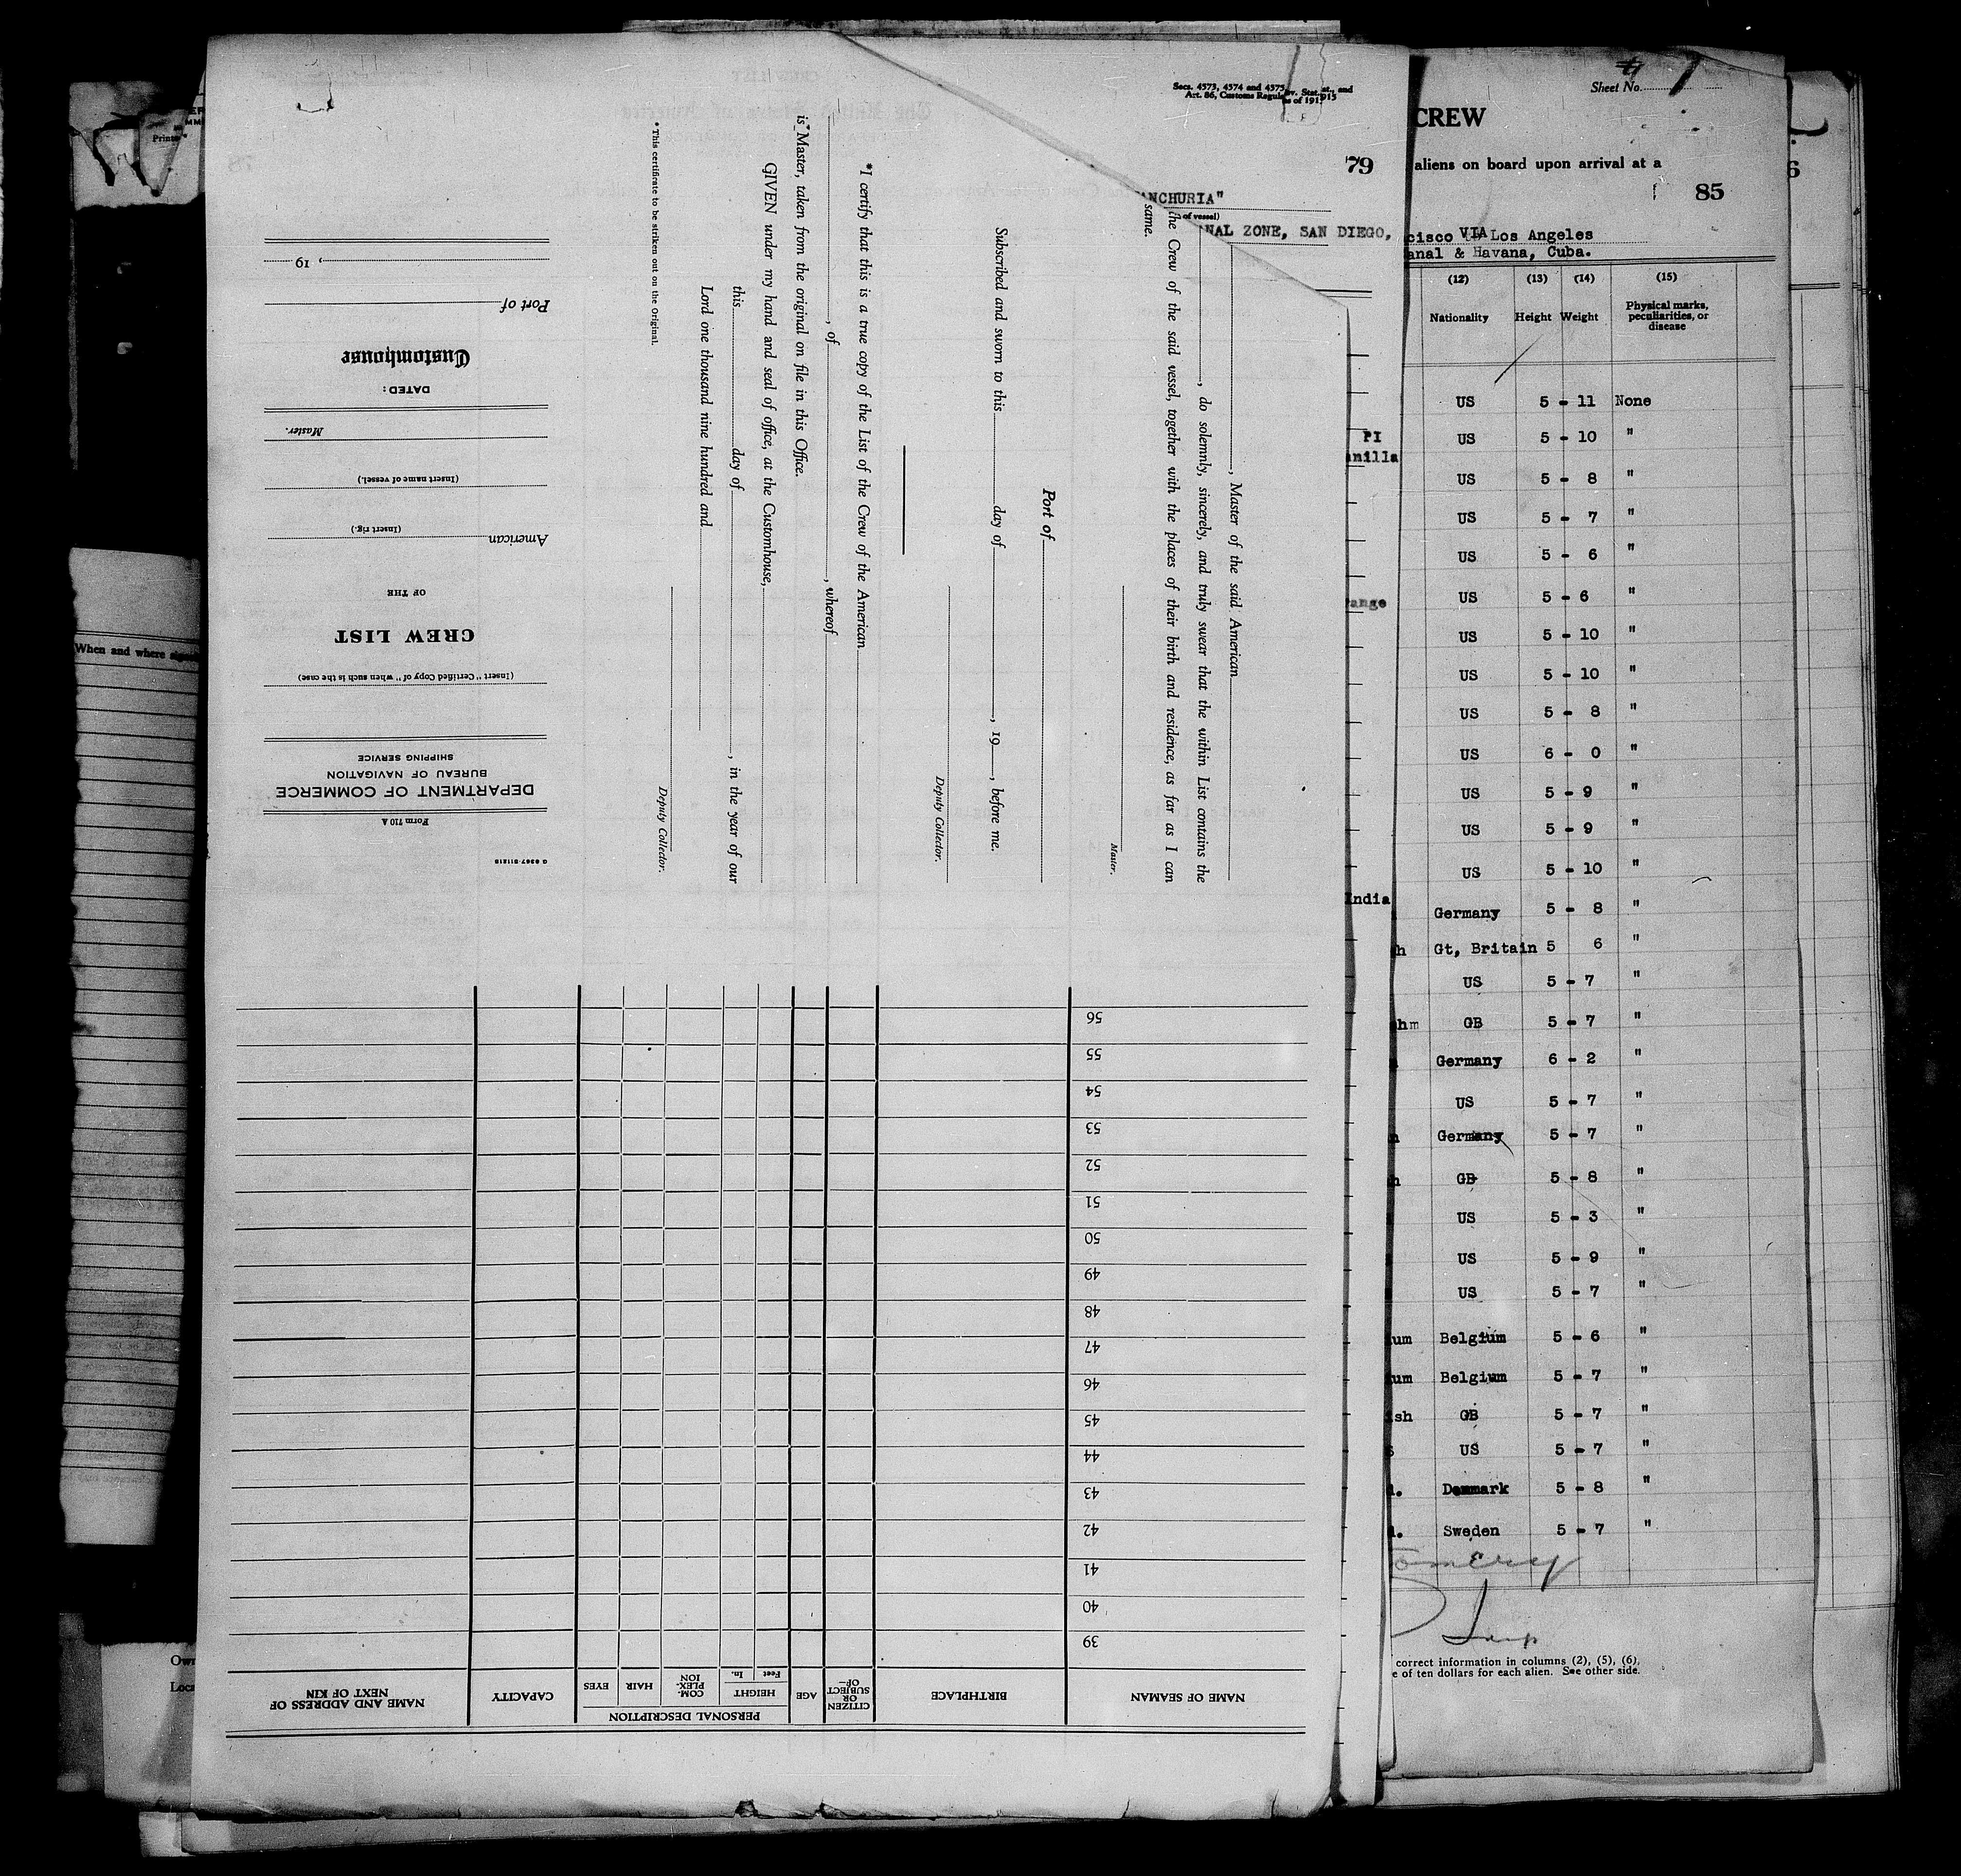 Secs. 4573, 4574 and 4575
Art. 86, Customs Regula
v. Stat.
at., and
s of 191
915
79
ANCHURIA"
of vessel)
NAL ZONE, SAN DIEGO,
PI
anilla
range
India
Form 710 A
DEPARTMENT OF COMMERCE
BUREAU OF NAVIGATION
SHIPPING SERVICE
(Insert "Certified Copy of" when such is the case)
CREW LIST
OF THE
American
(Insert rig.)
(Insert name of vessel.)
Master.
DATED:
Customhouse
Port of
, 19
, Master of the said American
, do solemnly, sincerely, and truly swear that the within List contains the
the Crew of the said vessel, together with the places of their birth and residence, as far as I can
same.
Master.
Port of
Subscribed and sworn to this day of , 19 , before me.
Deputy Collector.
*I certify that this is a true copy of the List of the Crew of the American
, of , whereof
is Master, taken from the original on file in this Office.
GIVEN under my hand and seal of office, at the Customhouse,
this day of , in the year of our
Lord one thousand nine hundred and
Deputy Collector.
*This certificate to be striken out on the Original.
NAME OF SEAMAN
BIRTHPLACE
CITIZEN OR SUBJECT OF—
AGE
PERSONAL DESCRIPTION
HEIGHT
Feet
In.
COM-PLEX-ION
HAIR
EYES
CAPACITY
NAME AND ADDRESS OF NEXT OF KIN
39
40
41
42
43
44
45
46
47
48
49
50
51
52
53
54
55
56
When and where
Sheet No.
CREW
aliens on board upon arrival at a
85
cisco VIA Los Angeles
anal & Havana, Cuba.
(12) (13) (14) (15)
Nationality Height Weight Physical marks, peculiarities, or disease
US 5 - 11 None
US 5 - 10 "
US 5 - 8 "
US 5 - 7 "
US 5 - 6 "
US 5 - 6 "
US 5 - 10 "
US 5 - 10 "
US 5 - 8 "
US 6 - 0 "
US 5 - 9 "
US 5 - 9 "
US 5 - 10 "
Germany 5 - 8 "
h Gt, Britain 5 6 "
US 5 - 7 "
hm GB 5 - 7 "
Germany 6 - 2 "
US 5 - 7 "
Germany 5 - 7 "
h GB 5 - 8 "
US 5 - 3 "
US 5 - 9 "
US 5 - 7 "
um Belgium 5 - 6 "
um Belgium 5 - 7 "
ish GB 5 - 7 "
US 5 - 7 "
Denmark 5 - 8 "
Sweden 5 - 7 "
correct information in columns (2), (5), (6),
e of ten dollars for each alien. See other side.
6